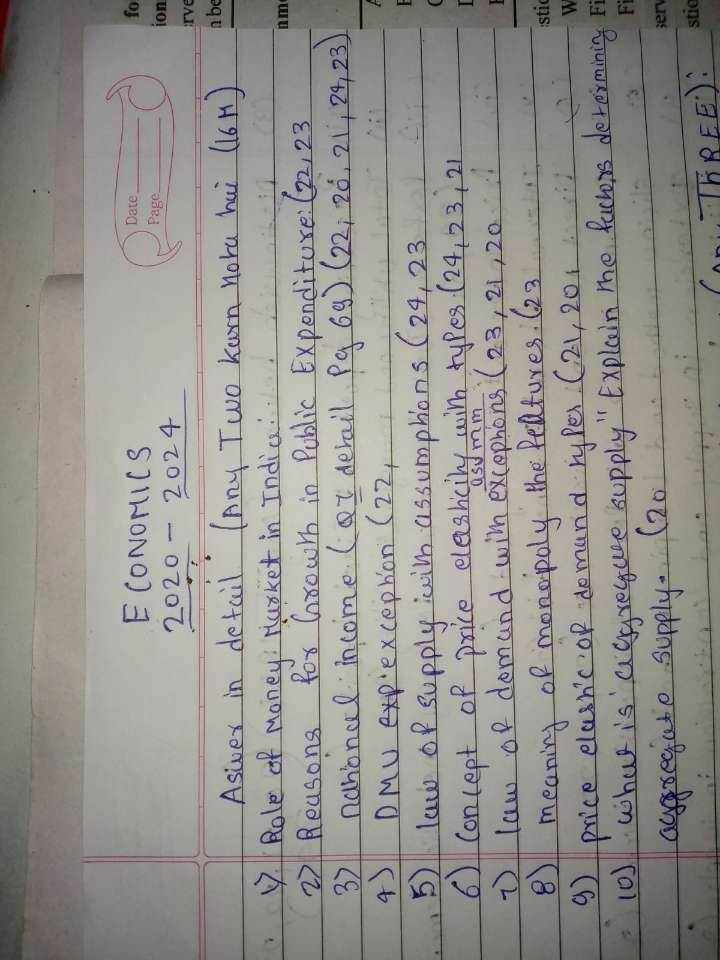 ECONOMICS
2020 - 2024
Date
Page
Asiwer in detail (Any Two karn hota hai (16M)
1) Role of Money Market in India:
2) Reasons for Growth in Public Expenditure: (22, 23
3) national income (Q7 detail Pg 69) (22, 20, 21, 24, 23)
4) DMU exp exception (22,
5) law of supply with assumptions (24, 23
6) Concept of price elasticity with types (24, 23, 21
asumm
7) law of demand with exceptions (23, 21, 20
8) meaning of monopoly the features. (23
9) price elastic of demand types (21, 20,
10) what is "aggregate supply" Explain the factors determining
aggregate supply. (20
(Any THREE):